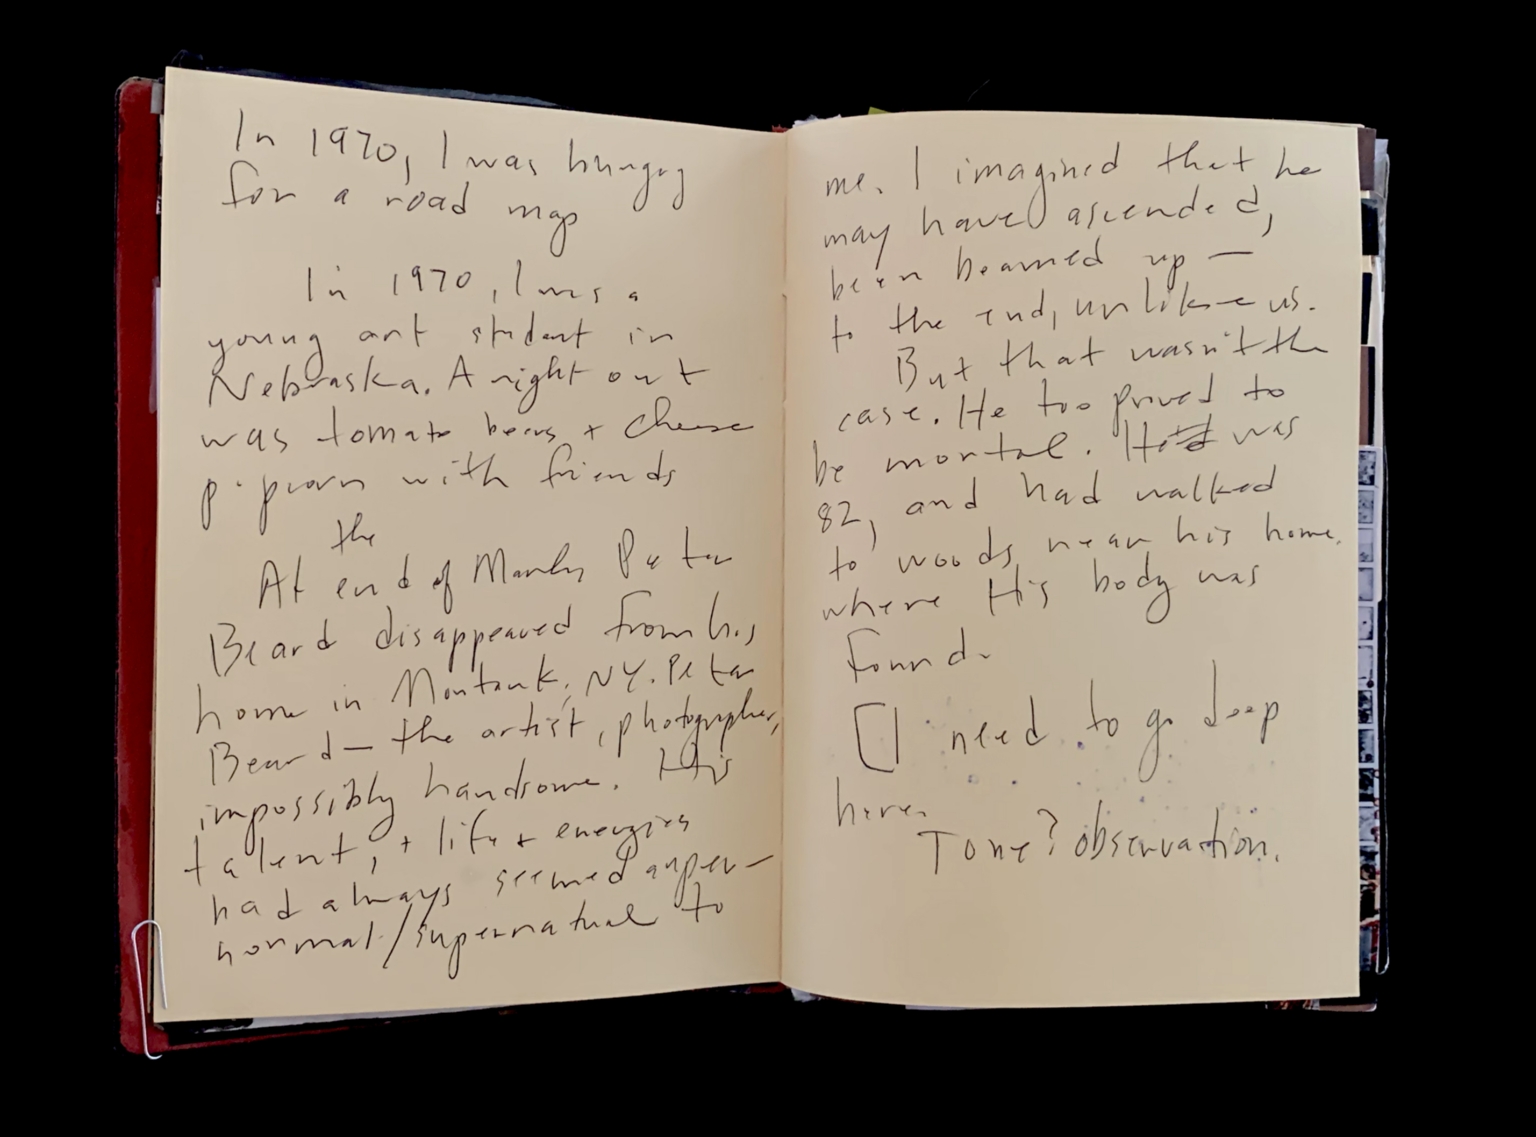 In 1970, I was hungry
for a road map
In 1970, I was a
young art student in
Nebraska. A night out
was tomato beers + cheese
popcorn with friends
the
At end of March, Peter
Beard disappeared from his
home in Montauk, NY. Peter
Beard — the artist, photographer,
impossibly handsome. His
talent, + life + energies
had always seemed super-
normal/supernatural to
me. I imagined that he
may have ascended,
been beamed up —
to the end, unlike us.
But that wasn't the
case. He too proved to
be mortal. He was
82, and had walked
to woods near his home.
where His body was
found.
[I need to go deep
here.
Tone? observation.